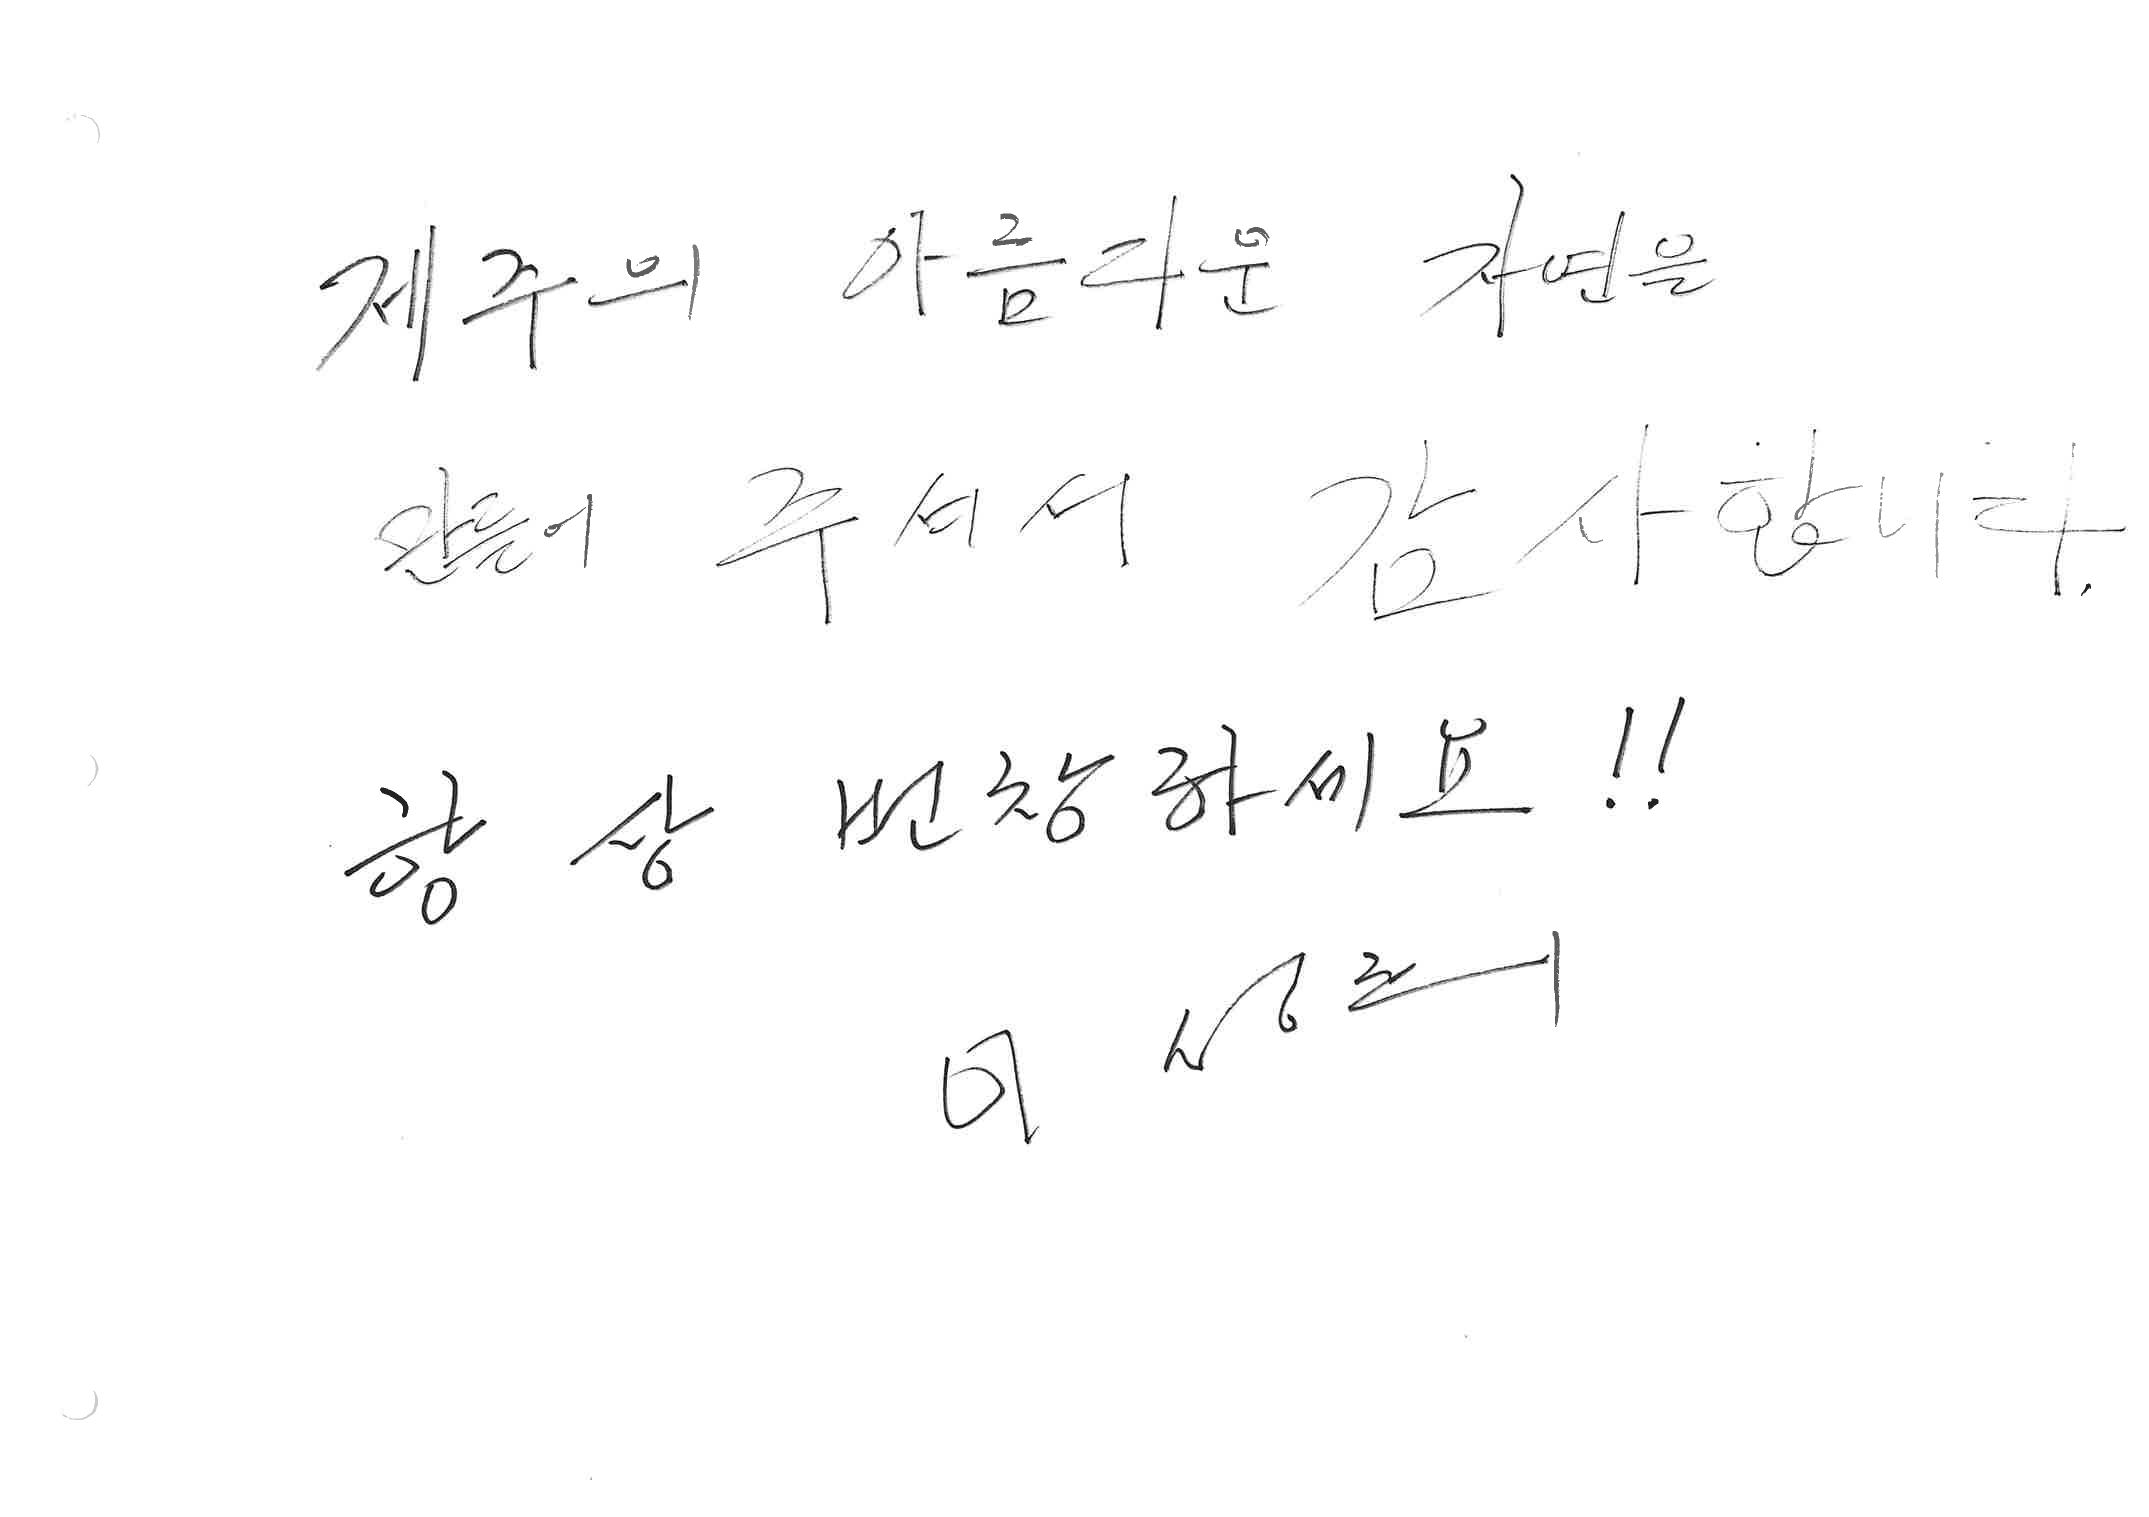 제주의 아름다운 자연을
만들어 주셔서 감사합니다.
항상 번창하세요!!
이